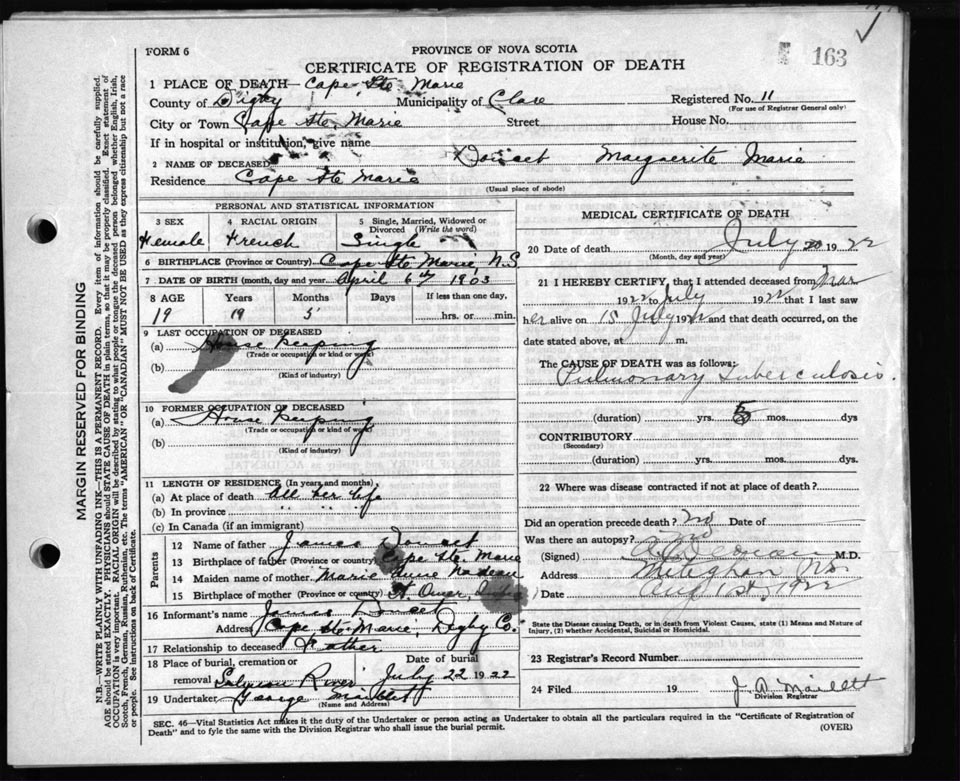 163
FORM 6
PROVINCE OF NOVA SCOTIA
CERTIFICATE OF REGISTRATION OF DEATH
1 PLACE OF DEATH— Cape Ste Marie
County of Digby Municipality of Clare Registered No. 11
(For use of Registrar General only)
City or Town Cape Ste. Marie Street House No.
If in hospital or institution, give name
2 NAME OF DECEASED Doucet Marguerite Marie
Residence Cape Ste Marie
(Usual place of abode)
PERSONAL AND STATISTICAL INFORMATION
3 SEX 4 RACIAL ORIGIN 5 Single, Married, Widowed or Divorced (Write the word)
Female French Single
6 BIRTHPLACE (Province or Country) Cape Ste Marie, N.S
7 DATE OF BIRTH (month, day and year) April 6th 1903
8 AGE Years Months Days If less than one day,
19 19 5 hrs. or min.
9 LAST OCCUPATION OF DECEASED
(a) House keeping
(Trade or occupation or kind of work)
(b)
(Kind of industry)
10 FORMER OCCUPATION OF DECEASED
(a) House keeping
(Trade or occupation or kind of work)
(b)
(Kind of industry)
11 LENGTH OF RESIDENCE (In years and months)
(a) At place of death All her life
(b) In province " " " "
(c) In Canada (if an immigrant)
Parents
12 Name of father James Doucet
13 Birthplace of father (Province or country) Cape Ste. Marie
14 Maiden name of mother Marie Anne
15 Birthplace of mother (Province or country) St Omer,
16 Informant's name James Doucet
Address Cape Ste. Marie, Digby Co.
17 Relationship to deceased Father
18 Place of burial, cremation or removal Salmon River Date of burial July 22 1922
19 Undertaker George Maillett
(Name and Address)
MEDICAL CERTIFICATE OF DEATH
20 Date of death July 20 1922
(Month, day and year)
21 I HEREBY CERTIFY, that I attended deceased from Mar
1922 to July 1922 that I last saw
her alive on 15 July 1922 and that death occurred, on the
date stated above, at m.
The CAUSE OF DEATH was as follows:
Pulmonary Tuberculosis.
(duration) yrs. 5 mos. dys
CONTRIBUTORY
(Secondary)
(duration) yrs. mos. dys.
22 Where was disease contracted if not at place of death?
Did an operation precede death? no Date of
Was there an autopsy? no
(Signed) M.D.
Address Meteghan N.S.
Date Aug 1st, 1922
State the Disease causing Death, or in death from Violent Causes, state (1) Means and Nature of
Injury, (2) whether Accidental, Suicidal or Homicidal.
23 Registrar's Record Number
24 Filed 19 J. A. Maillett
Division Registrar
SEC. 46—Vital Statistics Act makes it the duty of the Undertaker or person acting as Undertaker to obtain all the particulars required in the "Certificate of Registration of
Death" and to fyle the same with the Division Registrar who shall issue the burial permit. (OVER)
MARGIN RESERVED FOR BINDING
N.B.—WRITE PLAINLY WITH UNFADING INK—THIS IS A PERMANENT RECORD. Every item of information should be carefully supplied.
AGE should be stated EXACTLY. PHYSICIANS should STATE CAUSE OF DEATH in plain terms, so that it may be properly classified. Exact statement of
OCCUPATION is very important. RACIAL ORIGIN will be described by stating to what people or tongue the deceased person belonged whether English, Irish,
Scotch, French, German, Russian, Ruthenian, etc. The terms "AMERICAN" or "CANADIAN" MUST NOT BE USED as they express citizenship but not a race
or people. See instructions on back of Certificate.